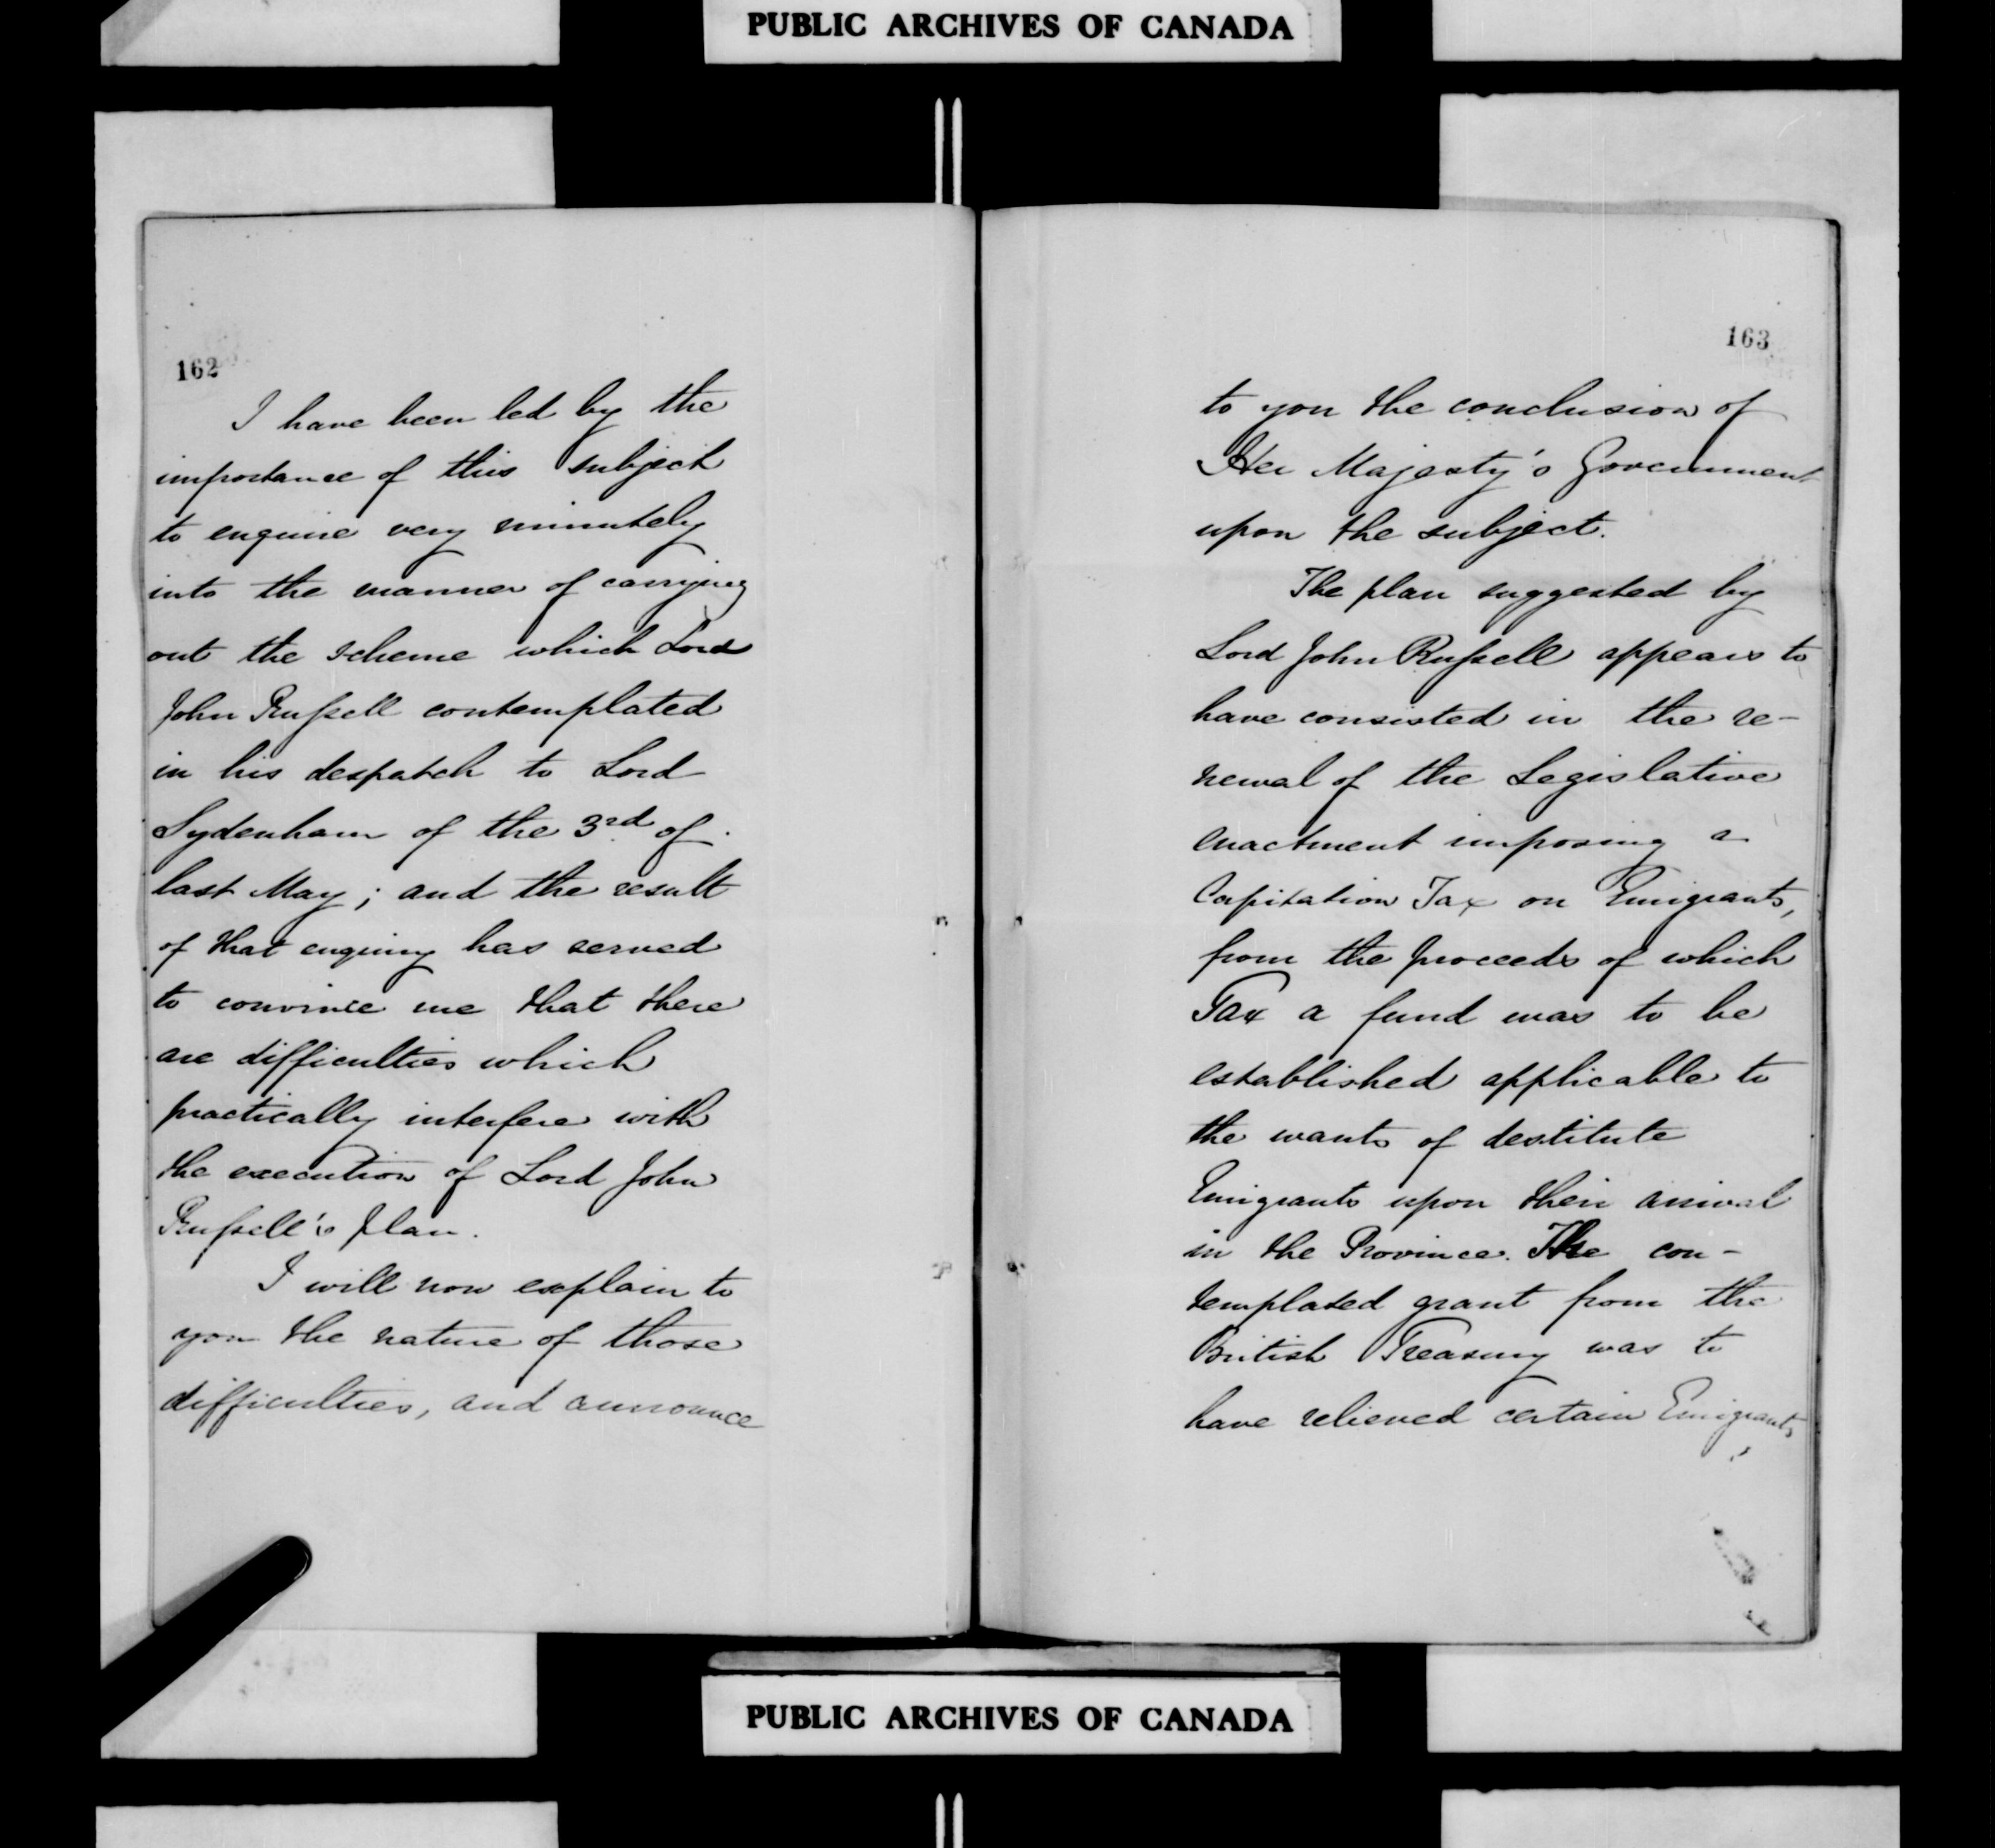 PUBLIC ARCHIVES OF CANADA
162
I have been led by the
importance of this subject
to enquire very minutely
into the manner of carrying
out the scheme which Lord
John Russell contemplated
in his despatch to Lord
Sydenham of the 3rd of
last May; and the result
of that enquiry has served
to convince me that there
are difficulties which
practically interfere with
the execution of Lord John
Russell's plan.
I will now explain to
you the nature of those
difficulties, and announce
163
to you the conclusion of
Her Majesty's Government
upon the subject.
The plan suggested by
Lord John Russell appears to
have consisted in the re-
newal of the Legislative
enactment imposing a
Capitation Tax on Emigrants,
from the proceeds of which
Tax a fund was to be
established applicable to
the wants of destitute
Emigrants upon their arrival
in the Province. The con-
templated grant from the
British Treasury was to
have relieved certain Emigrants
PUBLIC ARCHIVES OF CANADA